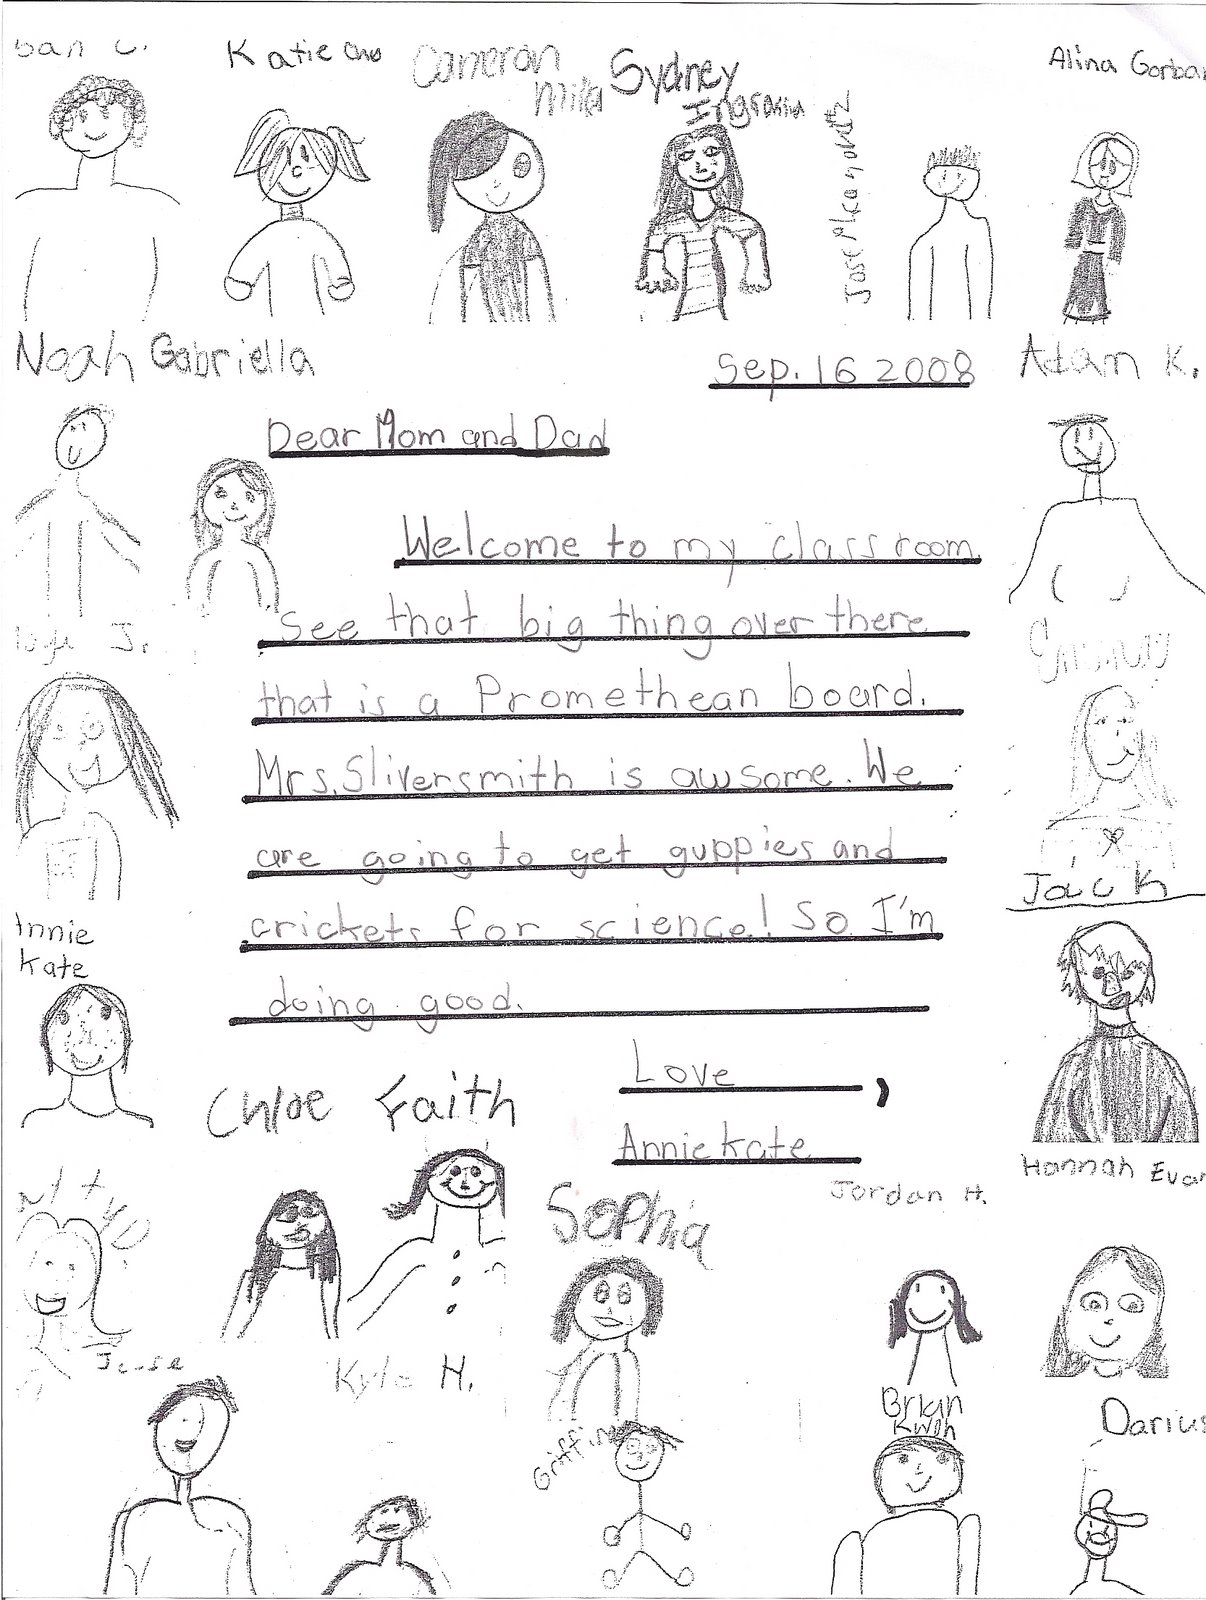 C.
Katie Cho
Cameron
Sydney
Alina Gorban
Noah Gabriella
Sep. 16 2008
Adam K.
Dear Mom and Dad
Welcome to my class room
See that big thing over there
J.
that is a Promethean board.
Mrs. Sliversmith is awsome. We
are going to get guppies and
Jack
crickets for science! So I'm
Innie
Kate
doing good.
Love ,
Chloe Faith
Anniekate
Hannah Evan
Jordan H.
Sophia
Kyle H.
Brian
Kwon
Darius
Griffin